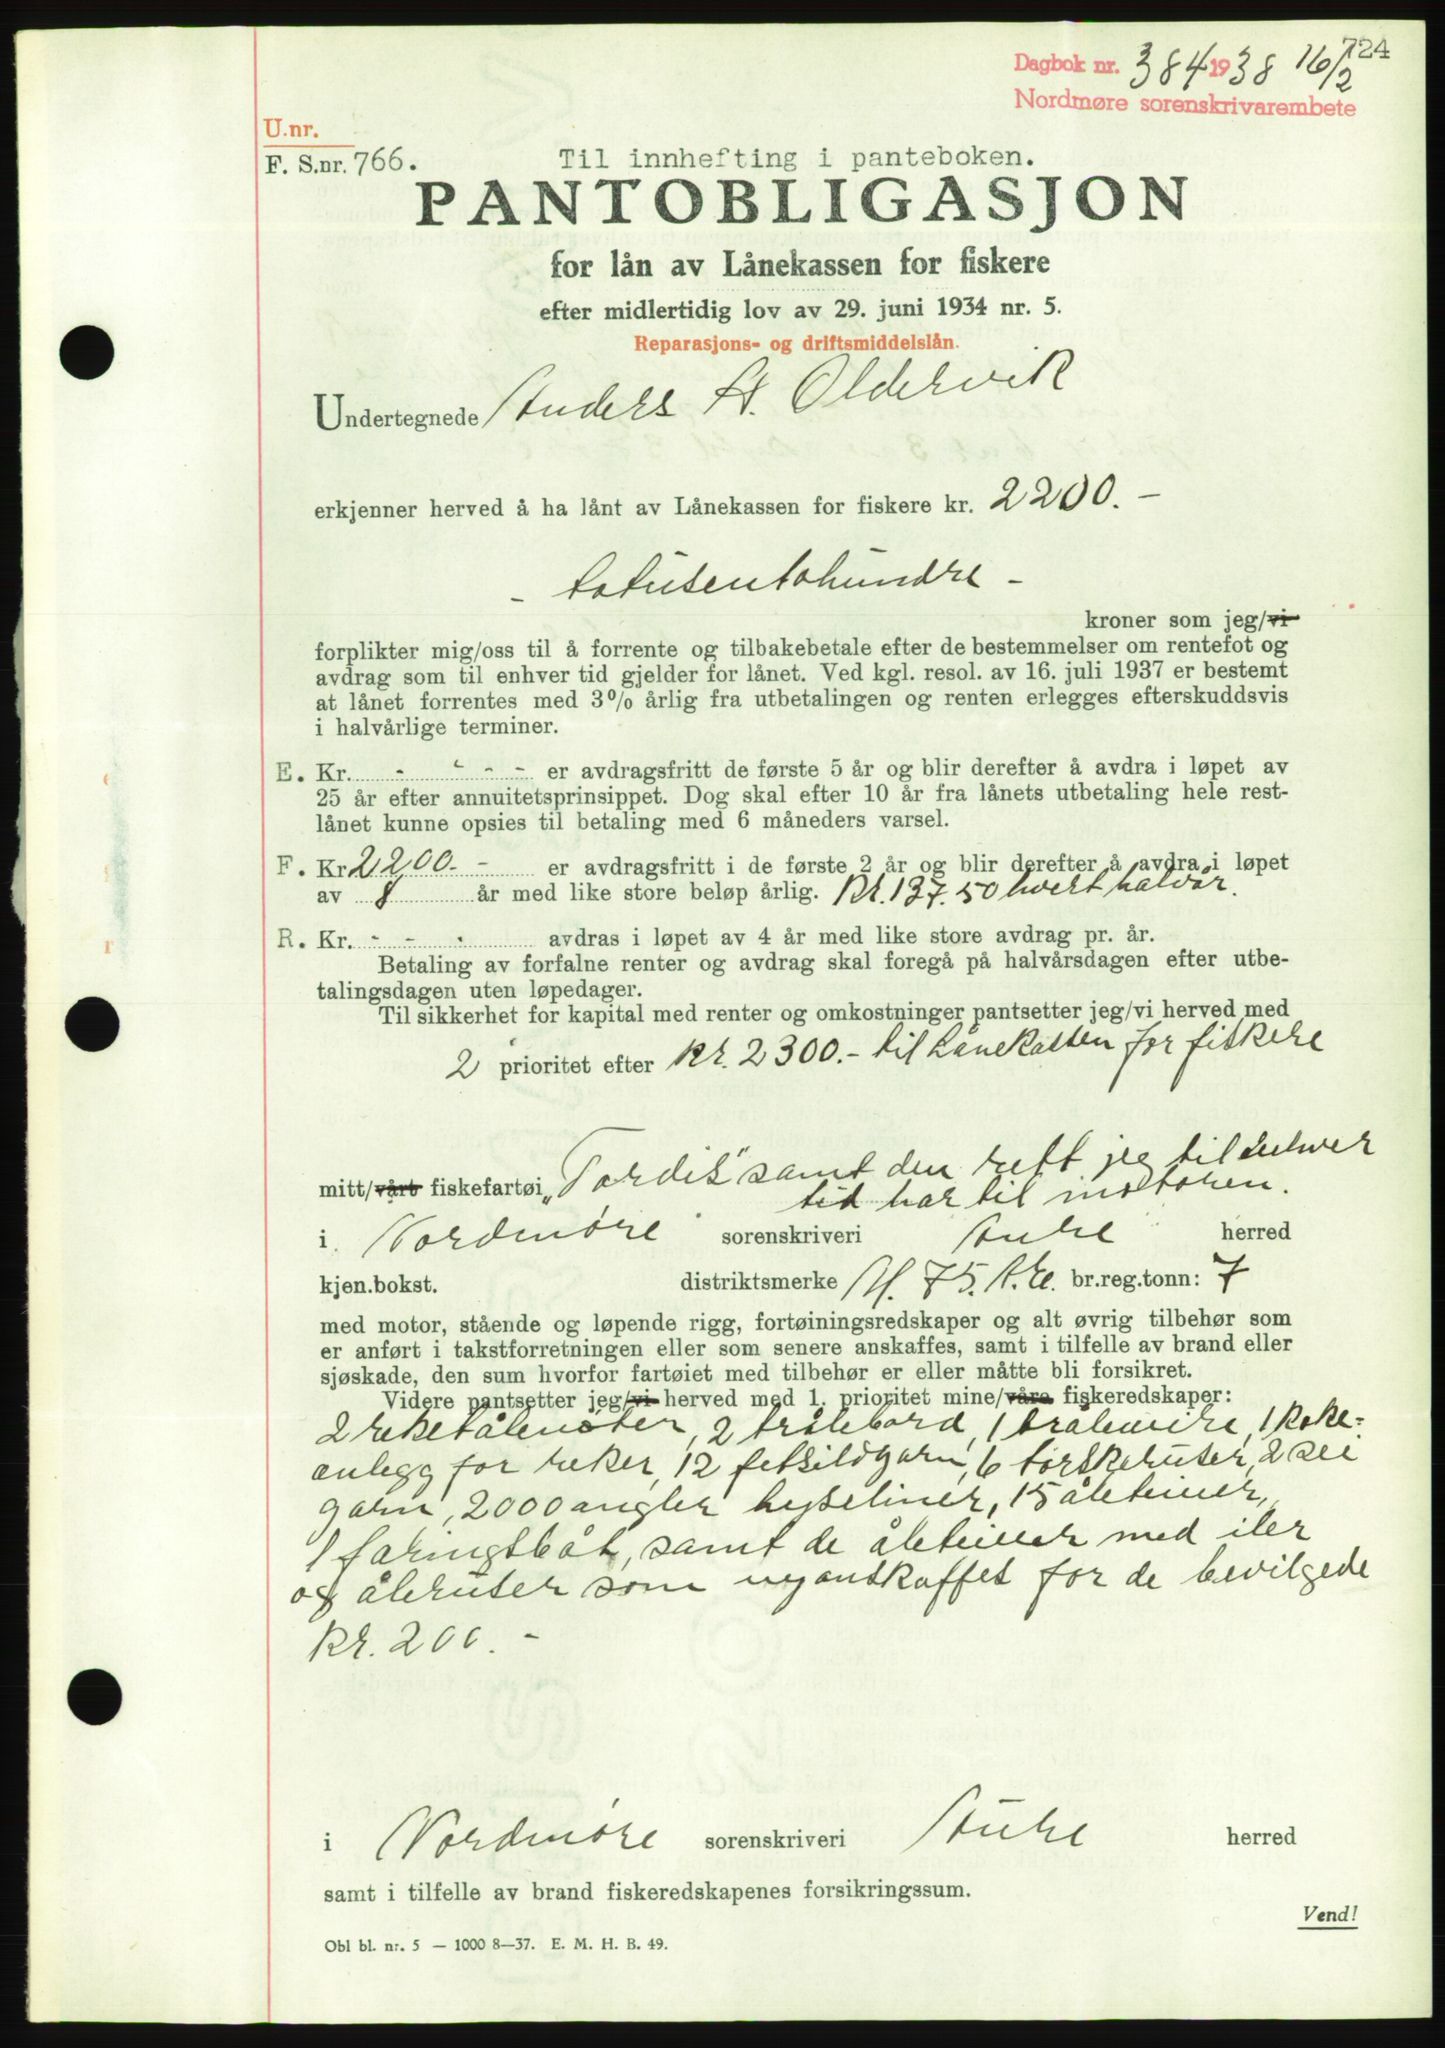 724
Dagbok nr. 384 1938 16/2
Nordmøre sorenskrivarembete
U.nr.
F. S.nr. 766.
Til innhefting i panteboken.
PANTOBLIGASJON
for lån av Lånekassen for fiskere
efter midlertidig lov av 29. juni 1934 nr. 5.
Reparasjons- og driftsmiddelslån.
Undertegnede Anders H. Oldervik
erkjenner herved å ha lånt av Lånekassen for fiskere kr. 2200.-
- totusentohundre -
kroner som jeg/vi
forplikter mig/oss til å forrente og tilbakebetale efter de bestemmelser om rentefot og
avdrag som til enhver tid gjelder for lånet. Ved kgl. resol. av 16. juli 1937 er bestemt
at lånet forrentes med 3% årlig fra utbetalingen og renten erlegges efterskuddsvis
i halvårlige terminer.
E. Kr. - - - - er avdragsfritt de første 5 år og blir derefter å avdra i løpet av
25 år efter annuitetsprinsippet. Dog skal efter 10 år fra lånets utbetaling hele rest-
lånet kunne opsies til betaling med 6 måneders varsel.
F. Kr 2200.- er avdragsfritt i de første 2 år og blir derefter å avdra i løpet
av 8 år med like store beløp årlig. Kr. 137.50 hvert halvår.
R. Kr. - - - avdras i løpet av 4 år med like store avdrag pr. år.
Betaling av forfalne renter og avdrag skal foregå på halvårsdagen efter utbe-
talingsdagen uten løpedager.
Til sikkerhet for kapital med renter og omkostninger pantsetter jeg/vi herved med
2 prioritet efter kr. 2300.- til Lånekassen for fiskere
mitt/vårt fiskefartøi „Tordis" samt den rett jeg til enhver
tid har til motoren.
i Nordmøre sorenskriveri Aure herred
kjen.bokst. distriktsmerke M. 75. A.e. br.reg.tonn: 7
med motor, stående og løpende rigg, fortøiningsredskaper og alt øvrig tilbehør som
er anført i takstforretningen eller som senere anskaffes, samt i tilfelle av brand eller
sjøskade, den sum hvorfor fartøiet med tilbehør er eller måtte bli forsikret.
Videre pantsetter jeg/vi herved med 1. prioritet mine/våre fiskeredskaper:
2 , 2 trålebord, 1 trålewire, 1 koke-
anlegg for reker, 12 fetsildgarn, 6 torskeruser, 2 sei
garn, 2000 angler hyseliner, 15 åleteiner,
1 færingsbåt, samt de åleteiner med iler
og åleruser som nyanskaffet for de bevilgede
kr. 200.-
i Nordmøre sorenskriveri Aure herred
samt i tilfelle av brand fiskeredskapenes forsikringssum.
Vend!
Obl bl. nr. 5 — 1000 8—37. E. M. H. B. 49.